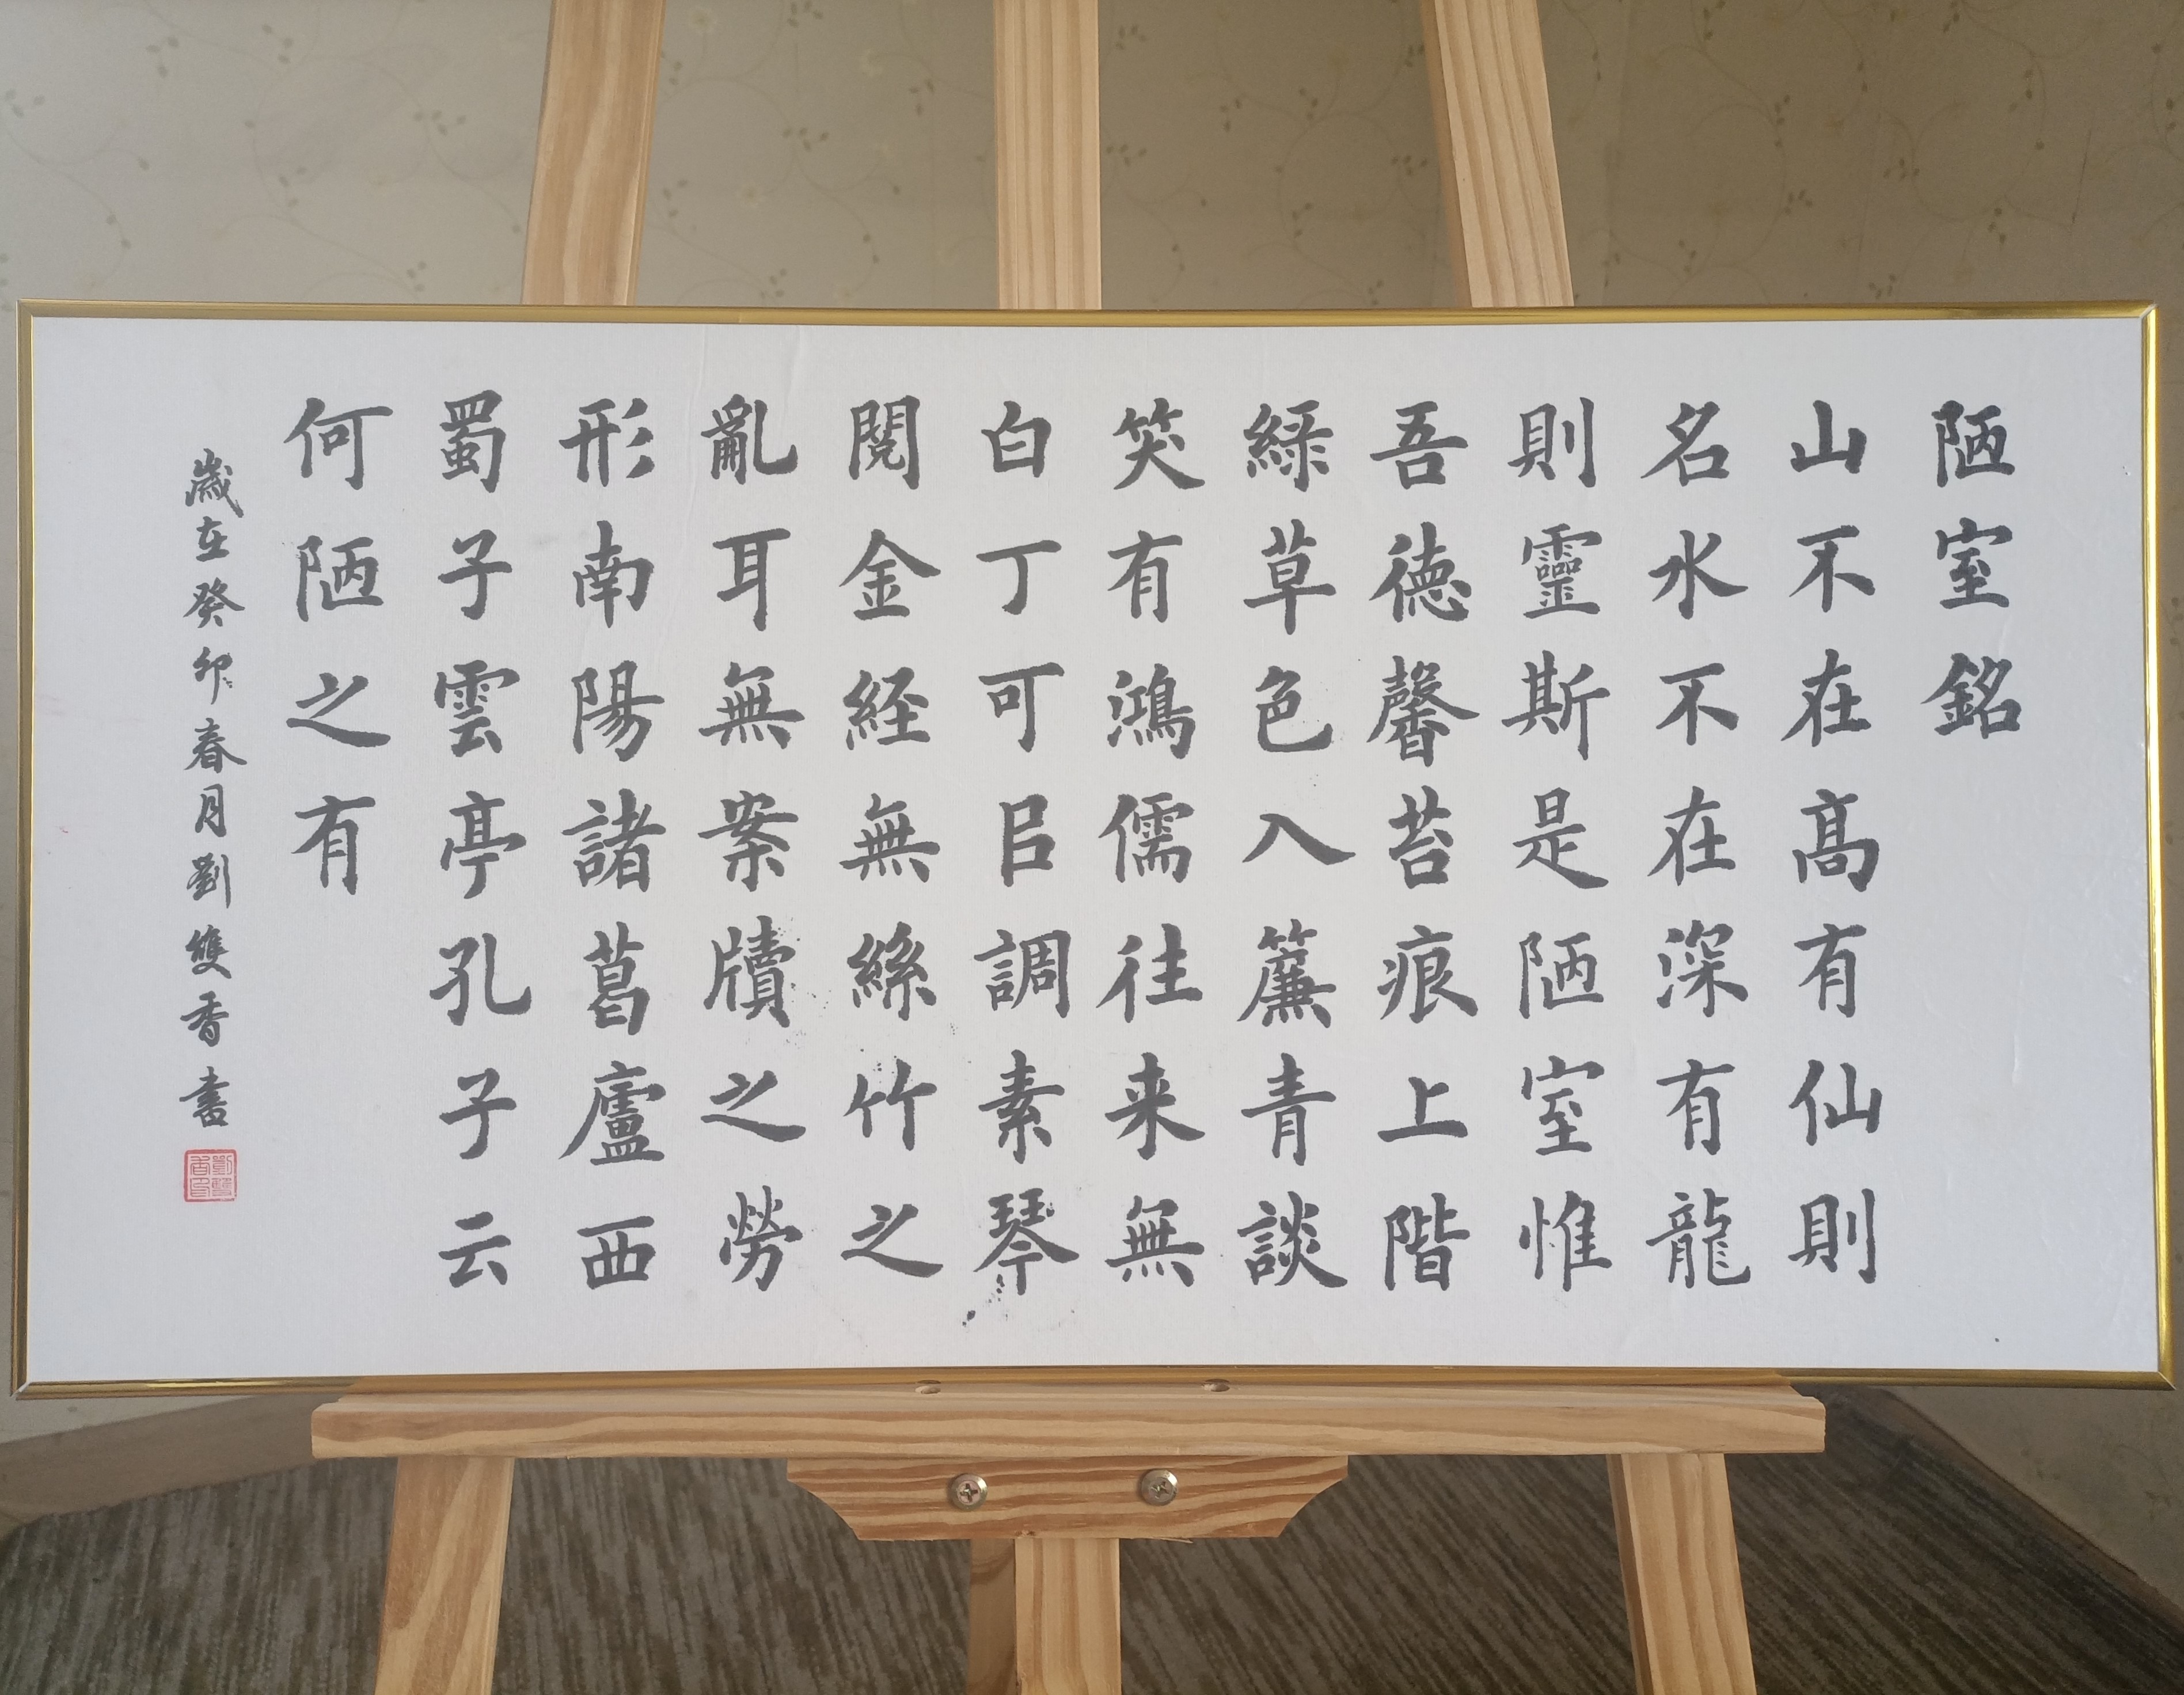 陋室銘
山不在高有仙則
名水不在深有龍
則靈斯是陋室惟
吾德馨苔痕上階
綠草色入簾青談
笑有鴻儒往来無
白丁可㠯調素琴
閱金経無絲竹之
亂耳無案牘之勞
形南陽諸葛廬西
蜀子雲亭孔子云
何陋之有
歲在癸卯春月劉雙香書